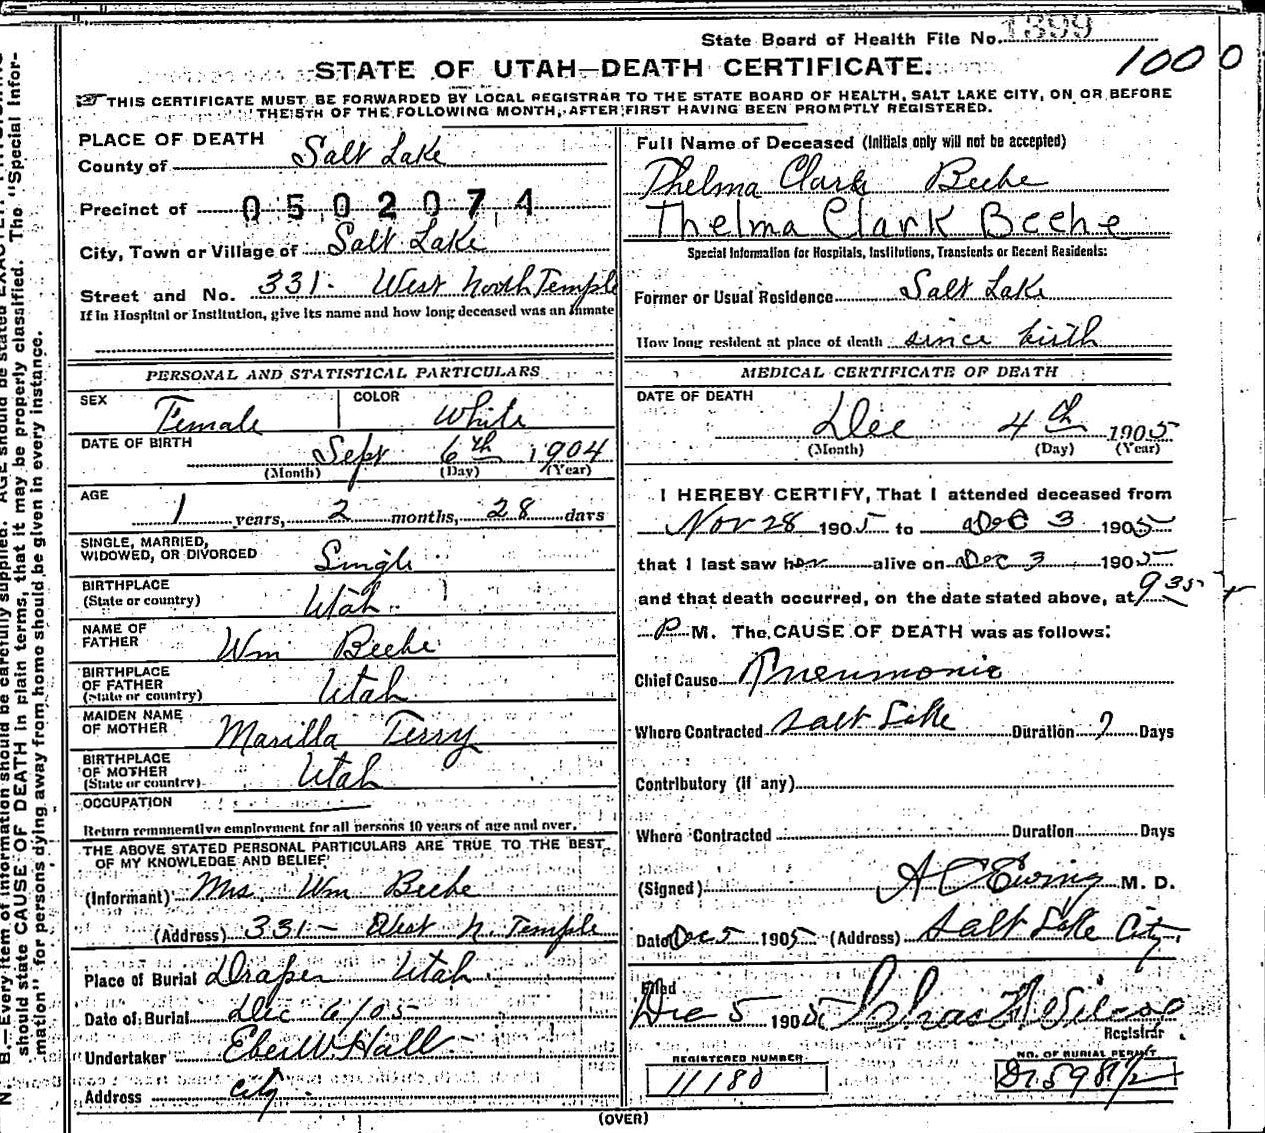 State Board of Health File No. 1399
1000
STATE OF UTAH—DEATH CERTIFICATE.
THIS CERTIFICATE MUST BE FORWARDED BY LOCAL REGISTRAR TO THE STATE BOARD OF HEALTH, SALT LAKE CITY, ON OR BEFORE
THE 5TH OF THE FOLLOWING MONTH, AFTER FIRST HAVING BEEN PROMPTLY REGISTERED.
PLACE OF DEATH
County of Salt Lake
Precinct of 0502074
City, Town or Village of Salt Lake
Street and No. 331 West North Temple
If in Hospital or Institution, give its name and how long deceased was an Inmate
PERSONAL AND STATISTICAL PARTICULARS
SEX Female COLOR White
DATE OF BIRTH Sept 6th 1904
(Month) (Day) (Year)
AGE
1 years, 2 months, 28 days
SINGLE, MARRIED,
WIDOWED, OR DIVORCED Single
BIRTHPLACE
(State or country) Utah
NAME OF
FATHER Wm Beebe
BIRTHPLACE
OF FATHER
(State or country) Utah
MAIDEN NAME
OF MOTHER Marilla Terry
BIRTHPLACE
OF MOTHER
(State or country) Utah
OCCUPATION
Return remunerative employment for all persons 10 years of age and over.
THE ABOVE STATED PERSONAL PARTICULARS ARE TRUE TO THE BEST
OF MY KNOWLEDGE AND BELIEF
(Informant) Mrs. Wm Beebe
(Address) 331 - West N. Temple
Place of Burial Draper Utah
Date of Burial Dec 6/05
Undertaker Eber W. Hall
Address City
Full Name of Deceased (Initials only will not be accepted)
Thelma Clark Beebe
Thelma Clark Beehe
Special Information for Hospitals, Institutions, Transients or Recent Residents:
Former or Usual Residence Salt Lake
How long resident at place of death since birth
MEDICAL CERTIFICATE OF DEATH
DATE OF DEATH
Dec 4th 1905
(Month) (Day) (Year)
I HEREBY CERTIFY, That I attended deceased from
Nov 28 1905 to Dec 3 1905
that I last saw her alive on Dec 3 1905
and that death occurred, on the date stated above, at 9 35
P M. The CAUSE OF DEATH was as follows:
Chief Cause Pneumonia
Where Contracted Salt Lake Duration 7 Days
Contributory (if any)
Where Contracted Duration Days
(Signed) A C Ewing M. D.
Date Dec 5 1905 (Address) Salt Lake City.
Filed
Dec 5 1905 Chas F Wilcox
Registrar
REGISTERED NUMBER
11180
NO. OF BURIAL PERMIT
(OVER)
N. B.—Every item of information should be carefully supplied. AGE should be stated EXACTLY.
should state CAUSE OF DEATH in plain terms, that it may be properly classified. The "Special Infor-
mation" for persons dying away from home should be given in every instance.